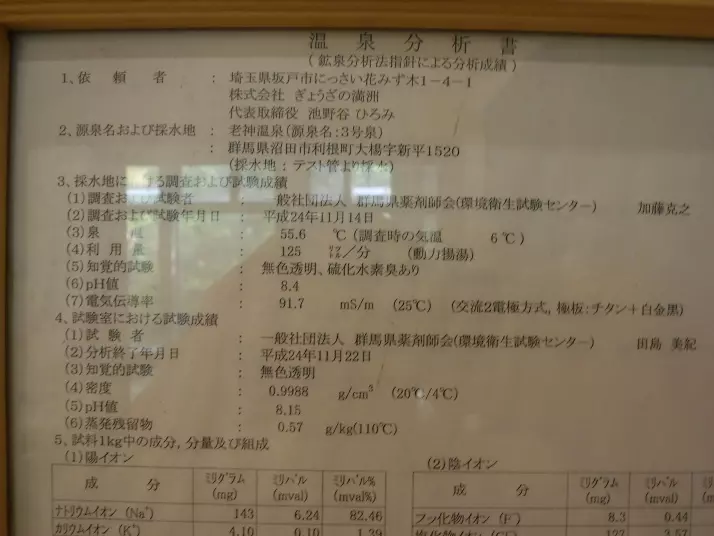 温泉分析書
（鉱泉分析法指針による分析成績）
1、依頼者 : 埼玉県坂戸市にっさい花みず木1-4-1
株式会社 ぎょうざの満洲
代表取締役 池野谷 ひろみ
2、源泉名および採水地 : 老神温泉(源泉名:3号泉)
: 群馬県沼田市利根町大楊字新平1520
(採水地 : テスト管より採水)
3、採水地における調査および試験成績
(1)調査および試験者 : 一般社団法人 群馬県薬剤師会(環境衛生試験センター) 加藤克之
(2)調査および試験年月日 : 平成24年11月14日
(3)泉温 : 55.6 ℃ (調査時の気温 6℃)
(4)利用量 : 125 リットル/分 (動力揚湯)
(5)知覚的試験 : 無色透明、硫化水素臭あり
(6)pH値 : 8.4
(7)電気伝導率 : 91.7 mS/m (25℃) (交流2電極方式, 極板:チタン+白金黒)
4、試験室における試験成績
(1)試験者 : 一般社団法人 群馬県薬剤師会(環境衛生試験センター) 田島 美紀
(2)分析終了年月日 : 平成24年11月22日
(3)知覚的試験 : 無色透明
(4)密度 : 0.9988 g/cm³ (20℃/4℃)
(5)pH値 : 8.15
(6)蒸発残留物 : 0.57 g/kg(110℃)
5、試料1kg中の成分, 分量及び組成
(1)陽イオン (2)陰イオン
成分 ミリグラム(mg) ミリバル(mval) ミリバル%(mval%) 成分 ミリグラム(mg) ミリバル(mval)
ナトリウムイオン (Na⁺) 143 6.24 82.46 フッ化物イオン (F⁻) 8.3 0.44
カリウムイオン (K⁺) 4.10 0.10 1.39 127 3.57